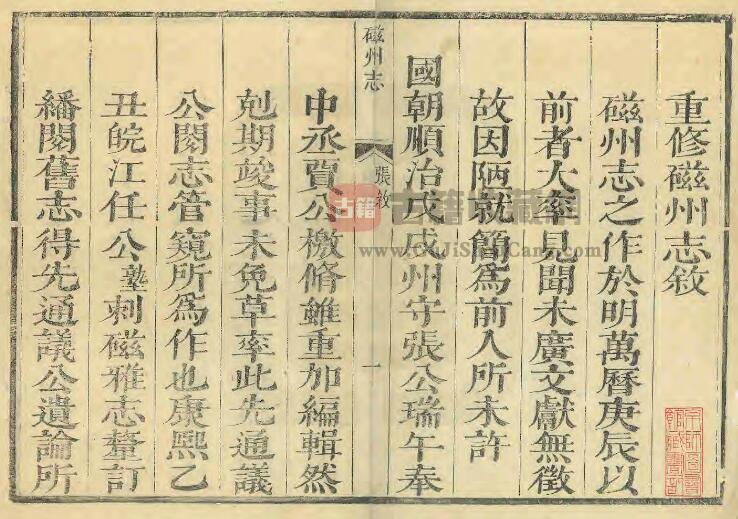 重修磁州志敘
磁州志之作於明萬曆庚辰以
前者大率見聞未廣文獻無徵
故因陋就簡爲前人所未許
國朝順治戊戌州守張公瑞午奉
磁州志
張敘
一
中丞賈公檄脩雖重加編輯然
剋期竣事未免草率此先通議
公閱志管窺所爲作也康熙乙
丑皖江任公塾刺磁雅志釐訂
繙閱舊志得先通議公遺論所
古籍
www.GuJiShuCang.com